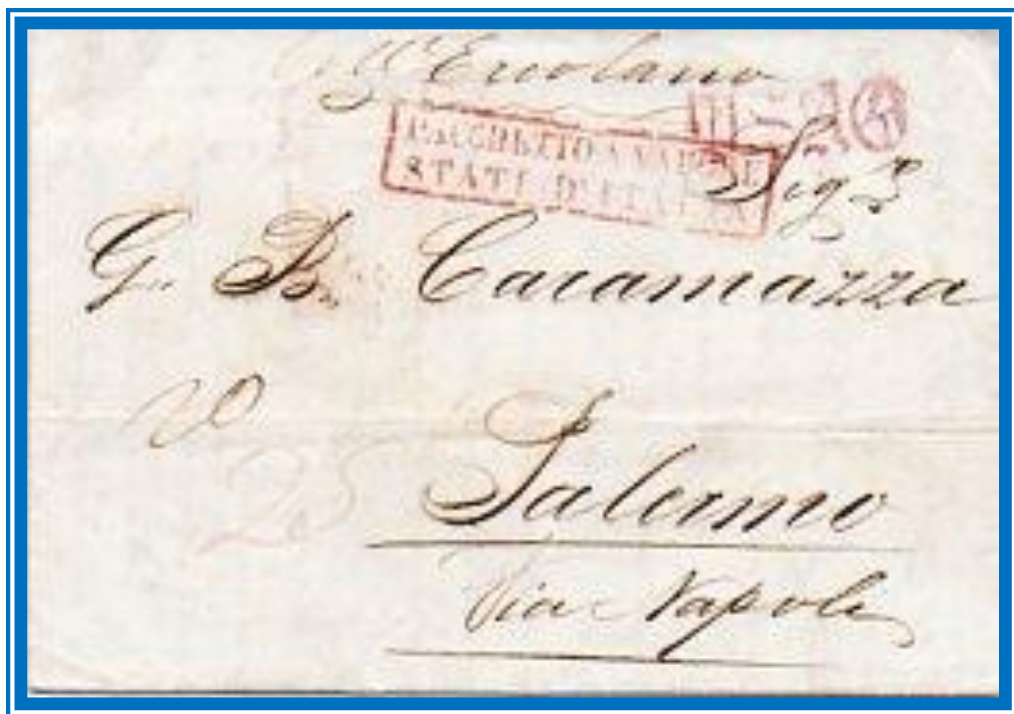 Ercolano
PACCHETTO A VAPORE
STATI D'ITALIA
Sig.r
G. B. Caramazza
20
25
Palermo
Via Napoli